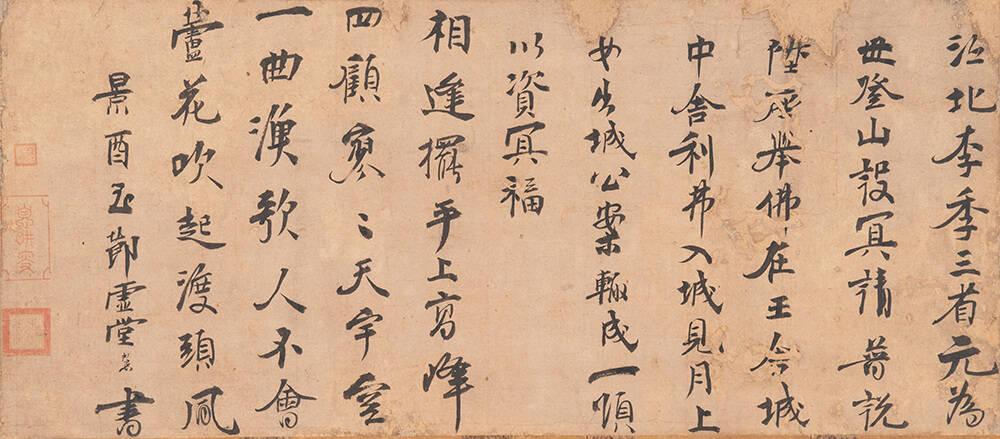 江北李季三省元為
母登山設冥請普説
陞座舉佛在王舎城
中舎利弗入城見月上
女出城公案輙成一頌
以資冥福
相逢擺手上高峰
四顧寥〻天宇空
一曲漁歌人不會
蘆花吹起渡頭風
景酉節虚堂書